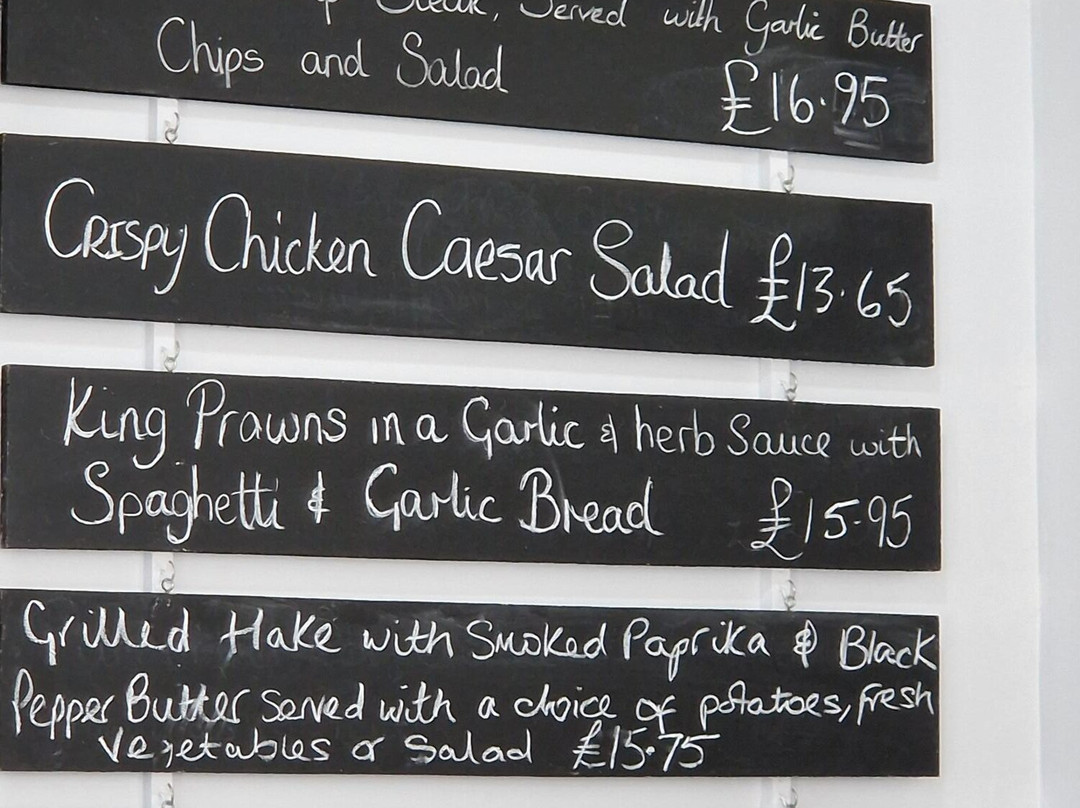 Steak, Served with Garlic Butter
Chips and Salad £16.95
Crispy Chicken Caesar Salad £13.65
King Prawns in a Garlic & herb Sauce with
Spaghetti & Garlic Bread £15.95
Grilled Hake with Smoked Paprika & Black
Pepper Butter served with a choice of potatoes, fresh
vegetables or Salad £15.75